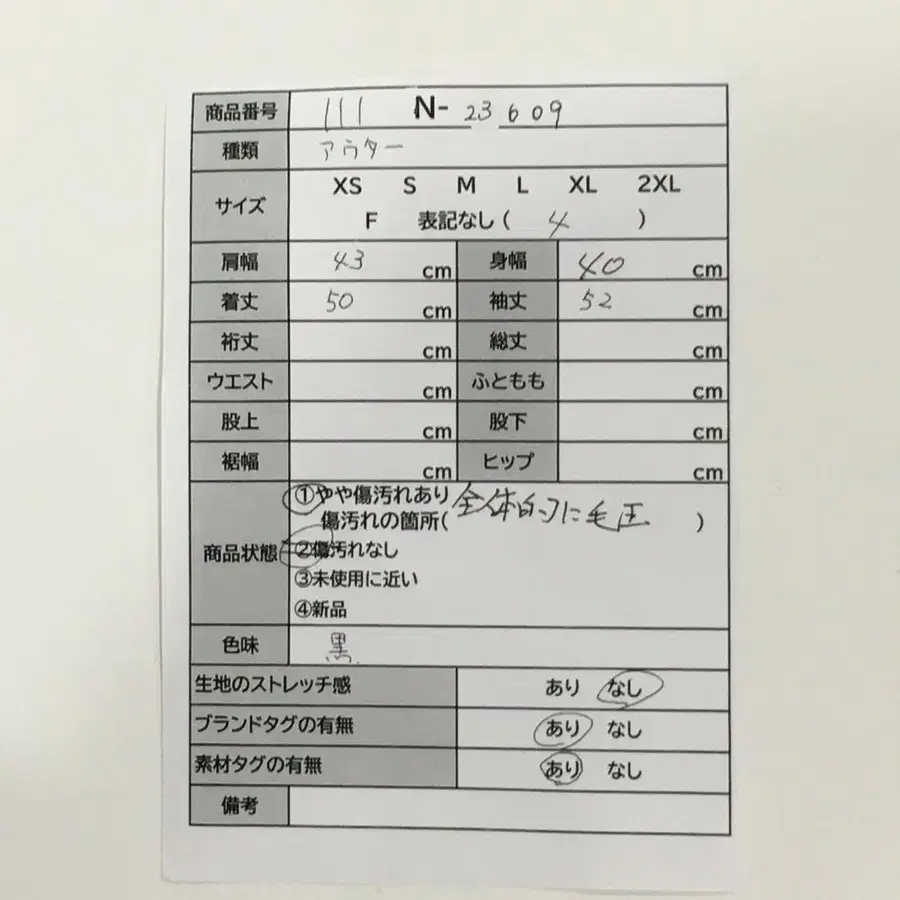 商品番号 111 N- 23 609
種類 アウター
サイズ XS S M L XL 2XL
F 表記なし ( 4 )
肩幅 43 cm 身幅 40 cm
着丈 50 cm 袖丈 52 cm
裄丈 cm 総丈 cm
ウエスト cm ふともも cm
股上 cm 股下 cm
裾幅 cm ヒップ cm
商品状態 ①やや傷汚れあり
傷汚れの箇所( 全体的に毛玉 )
②傷汚れなし
③未使用に近い
④新品
色味 黒
生地のストレッチ感 あり なし
ブランドタグの有無 あり なし
素材タグの有無 あり なし
備考